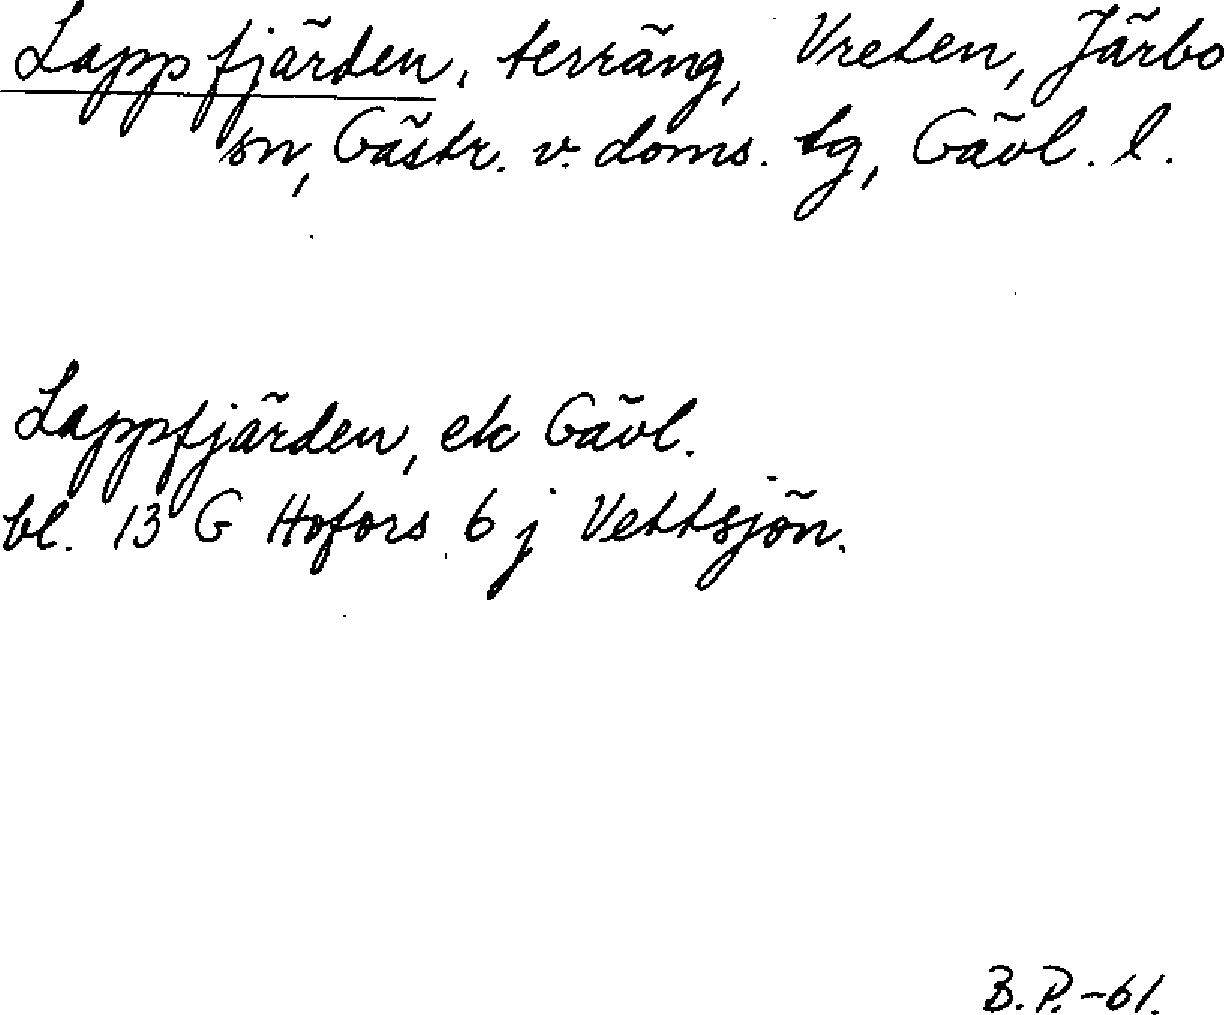 Lappfjärden, terräng, Vreten, Järbo
sn, Gästr. v. doms. tg, Gävl. l.
Lappfjärden, ek Gävl.
bl. 13 G Hofors 6 j Vettsjön.
B. P. -61.